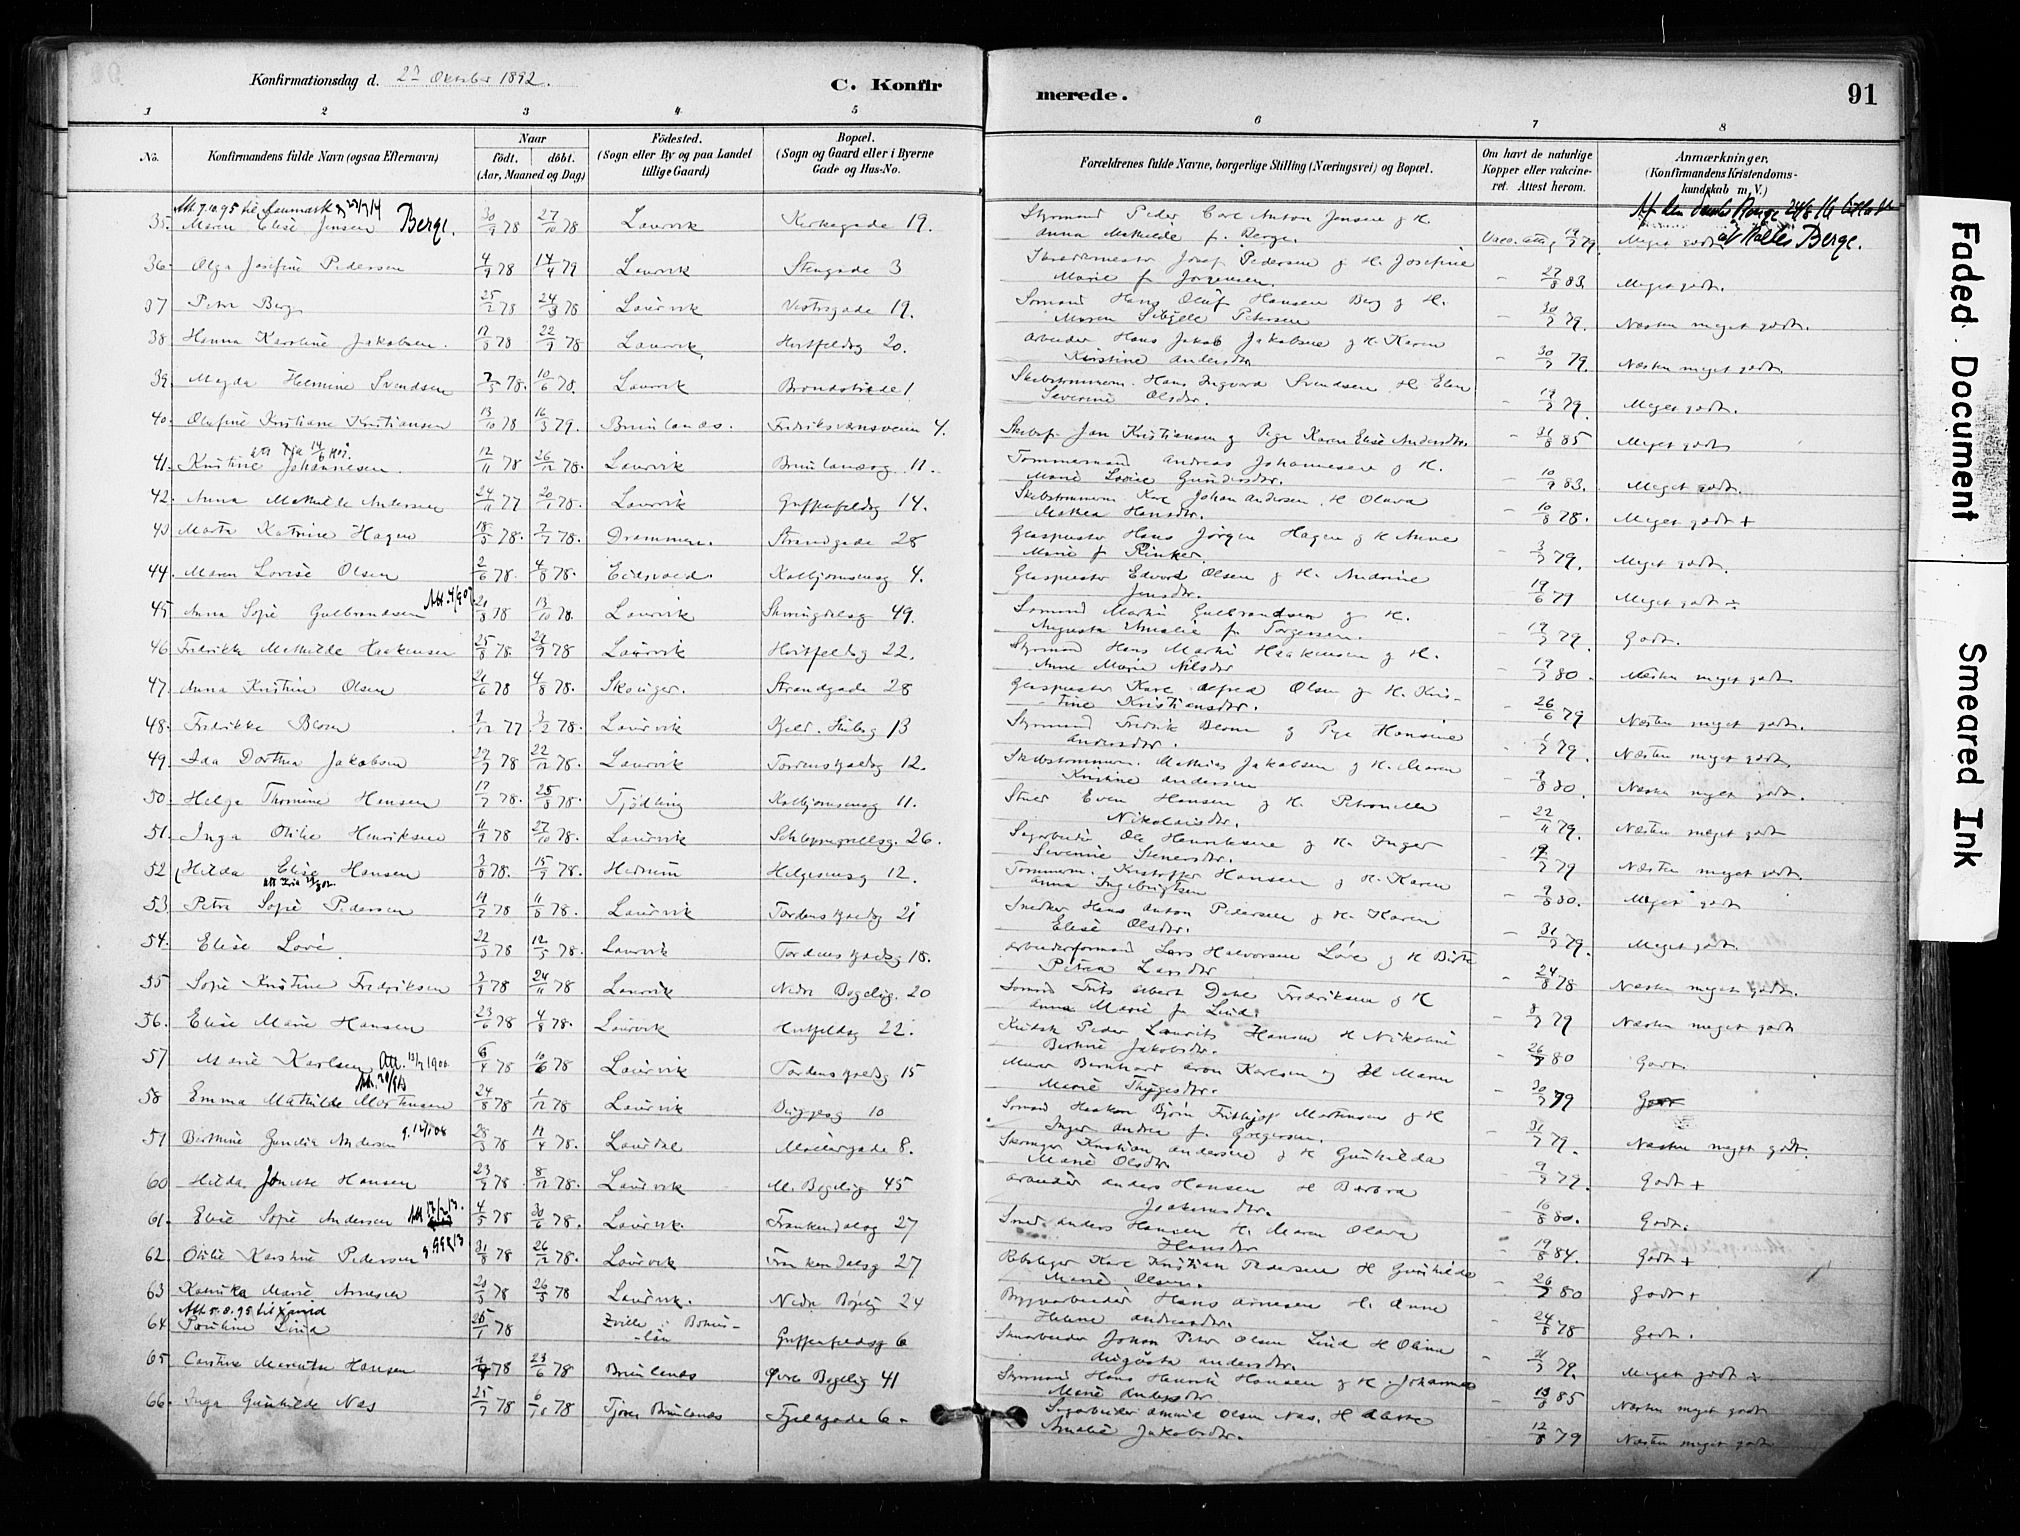 Konfirmationsdag d. 2den Oktober 1892.
C. Konfirmerede.
91
1 2 3 4 5 6 7 8
No.
Konfirmandens fulde Navn (ogsaa Efternavn)
Naar
født. døbt.
(Aar, Maaned og Dag)
Fødested.
(Sogn eller By og paa Landet tillige Gaard)
Bopæl.
(Sogn og Gaard eller i Byerne Gade og Hus-No.
Forældrenes fulde Navne, borgerlige Stilling (Næringsvei) og Bopæl.
Om havt de naturlige Kopper eller vakcineret. Attest herom.
Anmærkninger.
(Konfirmandens Kristendomskundskab m. V.)
Att 7.10.95 til Danmark
35. Maren Elise Jensen Berge. 30/9 78 27/10 78 Laurvik Kirkegade 19. Styrmand Peder Carl Anton Jensen og H. Anna Mathilde f. Berge. Vacc. att. 19/7 79. Meget godt. Berge.
36. Olga Josefine Pedersen 4/9 78 14/4 79 Laurvik Stengade 3 Pedersen og H. Josefine Marie f. Jørgensen. - 27/8 83. Meget godt.
37 Petra Berg 25/2 78 24/3 78 Laurvik Vestregade 19. Sømand Hans Oluf Hansen Berg og H. Maren Sibylle Petersen - 30/7 79. Næsten meget godt.
38 Hanna Karoline Jakobsen. 78 22/9 78 Laurvik. Hvitfeldsg 20. Arbeider Hans Jakob Jakobsen og H. Karen Kristine Andersdtr. - 30/7 79. Næsten meget godt.
39. Magda Helmine Svendsen 7/5 78. 10/6 78. Laurvik Brandstræde 1. Skibstømmerm. Hans Ingvard Svendsen H. Elen Severine Olsdtr. - 19/7 79. Meget godt.
40. Olufine Kristiane Kristiansen 13/10 78 16/3 79. Brunlanæs. Fredriksværnsveien 4. Skibsf. Jan Kristiansen og Pige Karen Elise Andersdtr. - 31/8 85 Meget godt
41. Kristine Johannesen. 12/11 78 26/12 78. Laurvik Brunlanæsg. 11. Tømmermand Andreas Johannesen og H. Marie Lovise Gundersdtr. - 10/9 83. Meget godt.
42. Anna Mathilde Andersen 24/11 77 20/1 78. Laurvik Guffenfeldsg 14. Skibstømmerm Karl Johan Andersen, H Olava Mathea Hansdtr. - 10/8 78. Meget godt +
43 Marta Katrine Hagen 18/5 78. 2/7 78. Drammen. Strandgade 28 Glaspuster Hans Jørgen Hagen og H Anne Marie f. Rinker. - 3/7 79. Meget godt.
44. Maren Lovise Olsen 2/6 78. 4/8 78. Eidsvold. Kolbjørnsensg 4. Glaspuster Edvard Olsen og H. Andrine Jensdtr. - 19/6 79 Meget godt
45 Anna Sofie Gulbrandsen 21/8 78 13/10 78. Laurvik Skringdalsg 49. Sømand Martin Gulbrandsen og H. Augusta Amalie f. Torgersen. - 19/7 79. Godt.
46 Fredrikke Mathilde Haakensen 25/8 78. 29/9 78 Laurvik Hvitfeldsg 22. Styrmand Hans Martin Haakensen og H. Anne Marie Nilsdtr - 19/7 80. Næsten meget godt
47. Anna Kristine Olsen 21/6 78 4/8 78. Skouger. Strandgade 28 Glaspuster Karl Alfred Olsen og H. Kristine Kristiansdtr. - 26/6 79 Næsten meget godt.
48. Fredrikke Blom 77 3/2 78. Laurvik Kjeld. Stubsg 13 Styrmand Fredrik Blom og Pige Hansine Andersdtr. - 1/7 79. Næsten meget godt.
49. Ida Dorthea Jakobsen 27/9 78 22/12 78. Laurvik Tordenskjoldsg 12. Skibstømmerm. Mathias Jakobsen og H. Maren Kristine Andersen - 9/8 80. Næsten meget godt.
50. Helga Thomine Hansen 17/7 78. 25/8 78. Tjødling Kolbjørnsensg 11. Even Hansen og H. Petronelle Nikolaisdtr. - 22/11 79. Næsten meget godt
51. Inga Otilie Henriksen 11/9 78 27/10 78. Laurvik Schleppegrellsg. 26. Sagarbeider Ole Henriksen og H. Inger Severine Stenersdtr. - 79 Næsten meget godt.
52 Hilda Elise Hansen 3/8 78. 15/9 78. Hedrum Helgesensg 12. Tømmerm. Kristoffer Hansen og H. Karen Anna Ingebrigtsen - 9/8 80. Meget godt
53. Petra Sofie Pedersen 78 11/8 78. Laurvik Tordenskjoldsg 21 Snedker Hans Anton Pedersen og H. Karen Elise Olsdtr. - 31/7 79. Meget godt.
54. Elise Løve 22/3 78 12/5 78. Laurvik Tordenskjoldsg 18. Arbeiderformand Lars Halvorsen Løve og H Birthe Petrea Larsdtr - 24/8 78 Næsten meget godt.
55 Sofie Kristine Fredriksen 78 24/11 78 Laurvik Nedre Bøgelig. 20 Sømand Frits Albert Dahl Fredriksen og H Anna Marie f. Lind. - 8/7 79 Næsten meget godt
56. Elise Marie Hansen 23/6 78 4/8 78. Laurvik Hvitfeldsg 22. Peder Laurits Hansen H Nikoline Berthine Jakobsdtr. - 26/7 80 Godt.
57 Marie Karlsen Att. 13/7 1900. 6/4 78 10/6 78 Laurvik Tordenskjoldsg 15 Murer Bernhard Aron Karlsen og H Maren Marie Thygesdtr. - 30/7 79 Godt
58 Emma Mathilde Mortensen 24/8 78 1/12 78 Laurvik Duggesg 10 Sømand Haakon Bjørn Frithjof Mortensen og H Inger Andrea f. Gregersen. - 31/7 79. Næsten meget godt.
59 Berthine Gundia Andersen 28/3 78 14/4 78. Laurdal Møllergade 8. Skomager Kristian Andersen og H Gunhilda Marie Olsdtr. - 9/7 79. Godt +
60 Hilda Jonette Hansen 23/9 78 8/12 78. Laurvik M. Bøgelig 45 Arbeider Anders Hansen H Barbra Joakimsdtr. - 16/8 80. Godt.
61. Elise Sofie Andersen 4/5 78 30/6 78. Laurvik. Frankendalsg 27 Smed Anders Hansen H. Maren Olava Hansdtr - 19/8 84. Godt +
62. Otilie Karstine Pedersen 31/8 78 26/12 78. Laurvik Frankendalsg 27 Rebslager Karl Kristian Pedersen H Gunhilde Marie Olsen. - 26/7 80 Godt +
63 Marie Arnesen 20/3 78 26/5 78 Laurvik. Nedre Bøgelig 24 Bygarbeider Hans Arnesen H. Anne Helene Andersdtr. - 24/8 78 Godt.
Att 5.8.95 til
64 Pauline Lind 78 Zville i Bohuslän Guffenfeldsg 6 Johan Peter Olsen Lind H Olina Augusta Andersdtr. - 79. Meget godt
65 Carstine Marentse Hansen 78 23/6 78 Brunlanæs Øvre Bøgelig 41 Styrmand Hans Henrik Hansen og H. Johanne Marie Andersdtr - 13/8 85 Næsten meget godt
66. Inga Gunhilde Næs 25/7 78 78 Tjøres Brunlanæs Fjeldgade 6. Sagarbeider Olsen Næs. H Amalie Jakobsdtr. - 12/8 79 Næsten meget godt
Faded Document
Smeared Ink